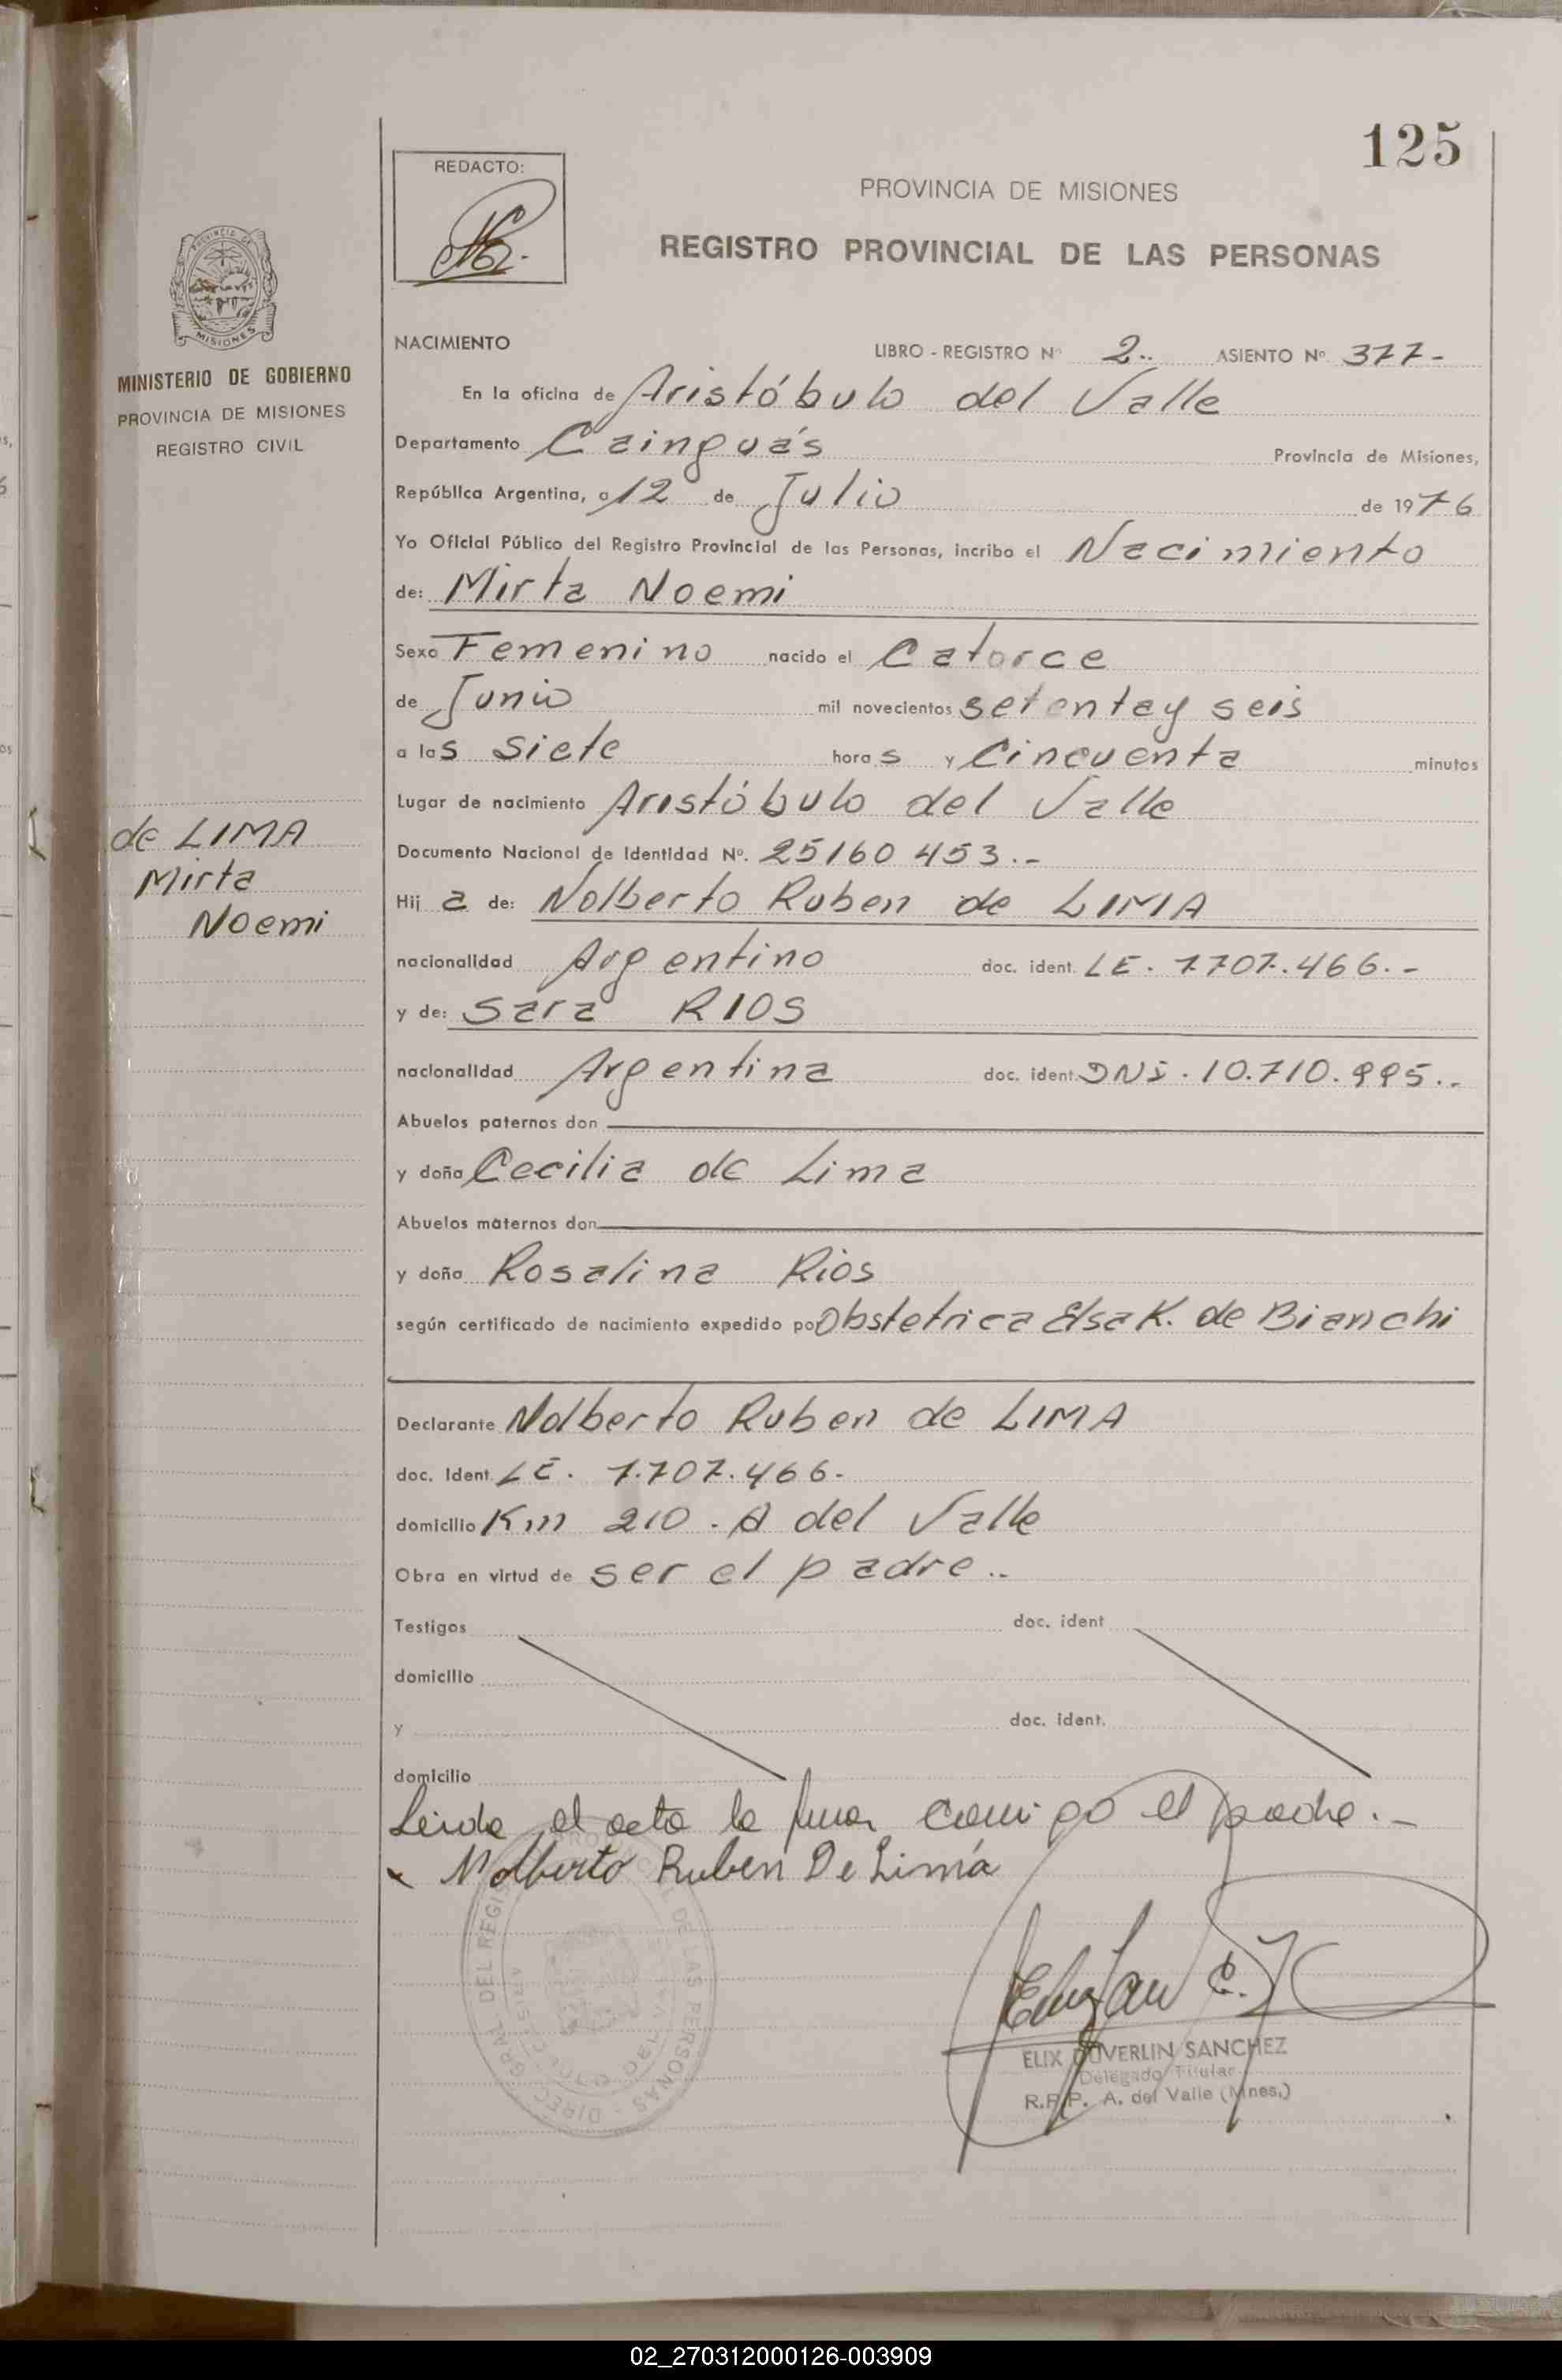 125
REDACTO:
PROVINCIA DE MISIONES
REGISTRO PROVINCIAL DE LAS PERSONAS
MISIONES
MINISTERIO DE GOBIERNO
PROVINCIA DE MISIONES
REGISTRO CIVIL
NACIMIENTO LIBRO - REGISTRO Nº 2.. ASIENTO Nº 377-
En la oficina de Aristóbulo del Valle
Departamento Cainguás Provincia de Misiones,
República Argentina, a 12 de Julio de 1976
Yo Oficial Público del Registro Provincial de las Personas, incribo el Nacimiento
de: Mirta Noemi
Sexo Femenino nacido el Catorce
de Junio mil novecientos setenta y seis
a las siete horas y Cincuenta minutos
Lugar de nacimiento Aristóbulo del Valle
de LIMA
Mirta
Noemi
Documento Nacional de Identidad Nº. 25160 453.-
Hij a de: Nolberto Ruben de LIMA
nacionalidad Argentino doc. ident. LE. 7.707.466.-
y de: Sara RIOS
nacionalidad Argentina doc. ident. DNI. 10.710.995..
Abuelos paternos don
y doña Cecilia de Lima
Abuelos maternos don
y doña Rosalina Rios
según certificado de nacimiento expedido por Obstetrica Elsa K. de Bianchi
Declarante Nolberto Ruben de LIMA
doc. Ident. LE. 7.707.466.
domicilio Km 210. A del Valle
Obra en virtud de ser el padre..
Testigos doc. ident
domicilio
y doc. ident.
domicilio
Leida el acta la firma conmigo el padre.-
Nolberto Ruben De Lima
ELIX DUVERLIN SANCHEZ
Delegado Titular
R.P.P. A. del Valle (Mnes.)
02_270312000126-003909